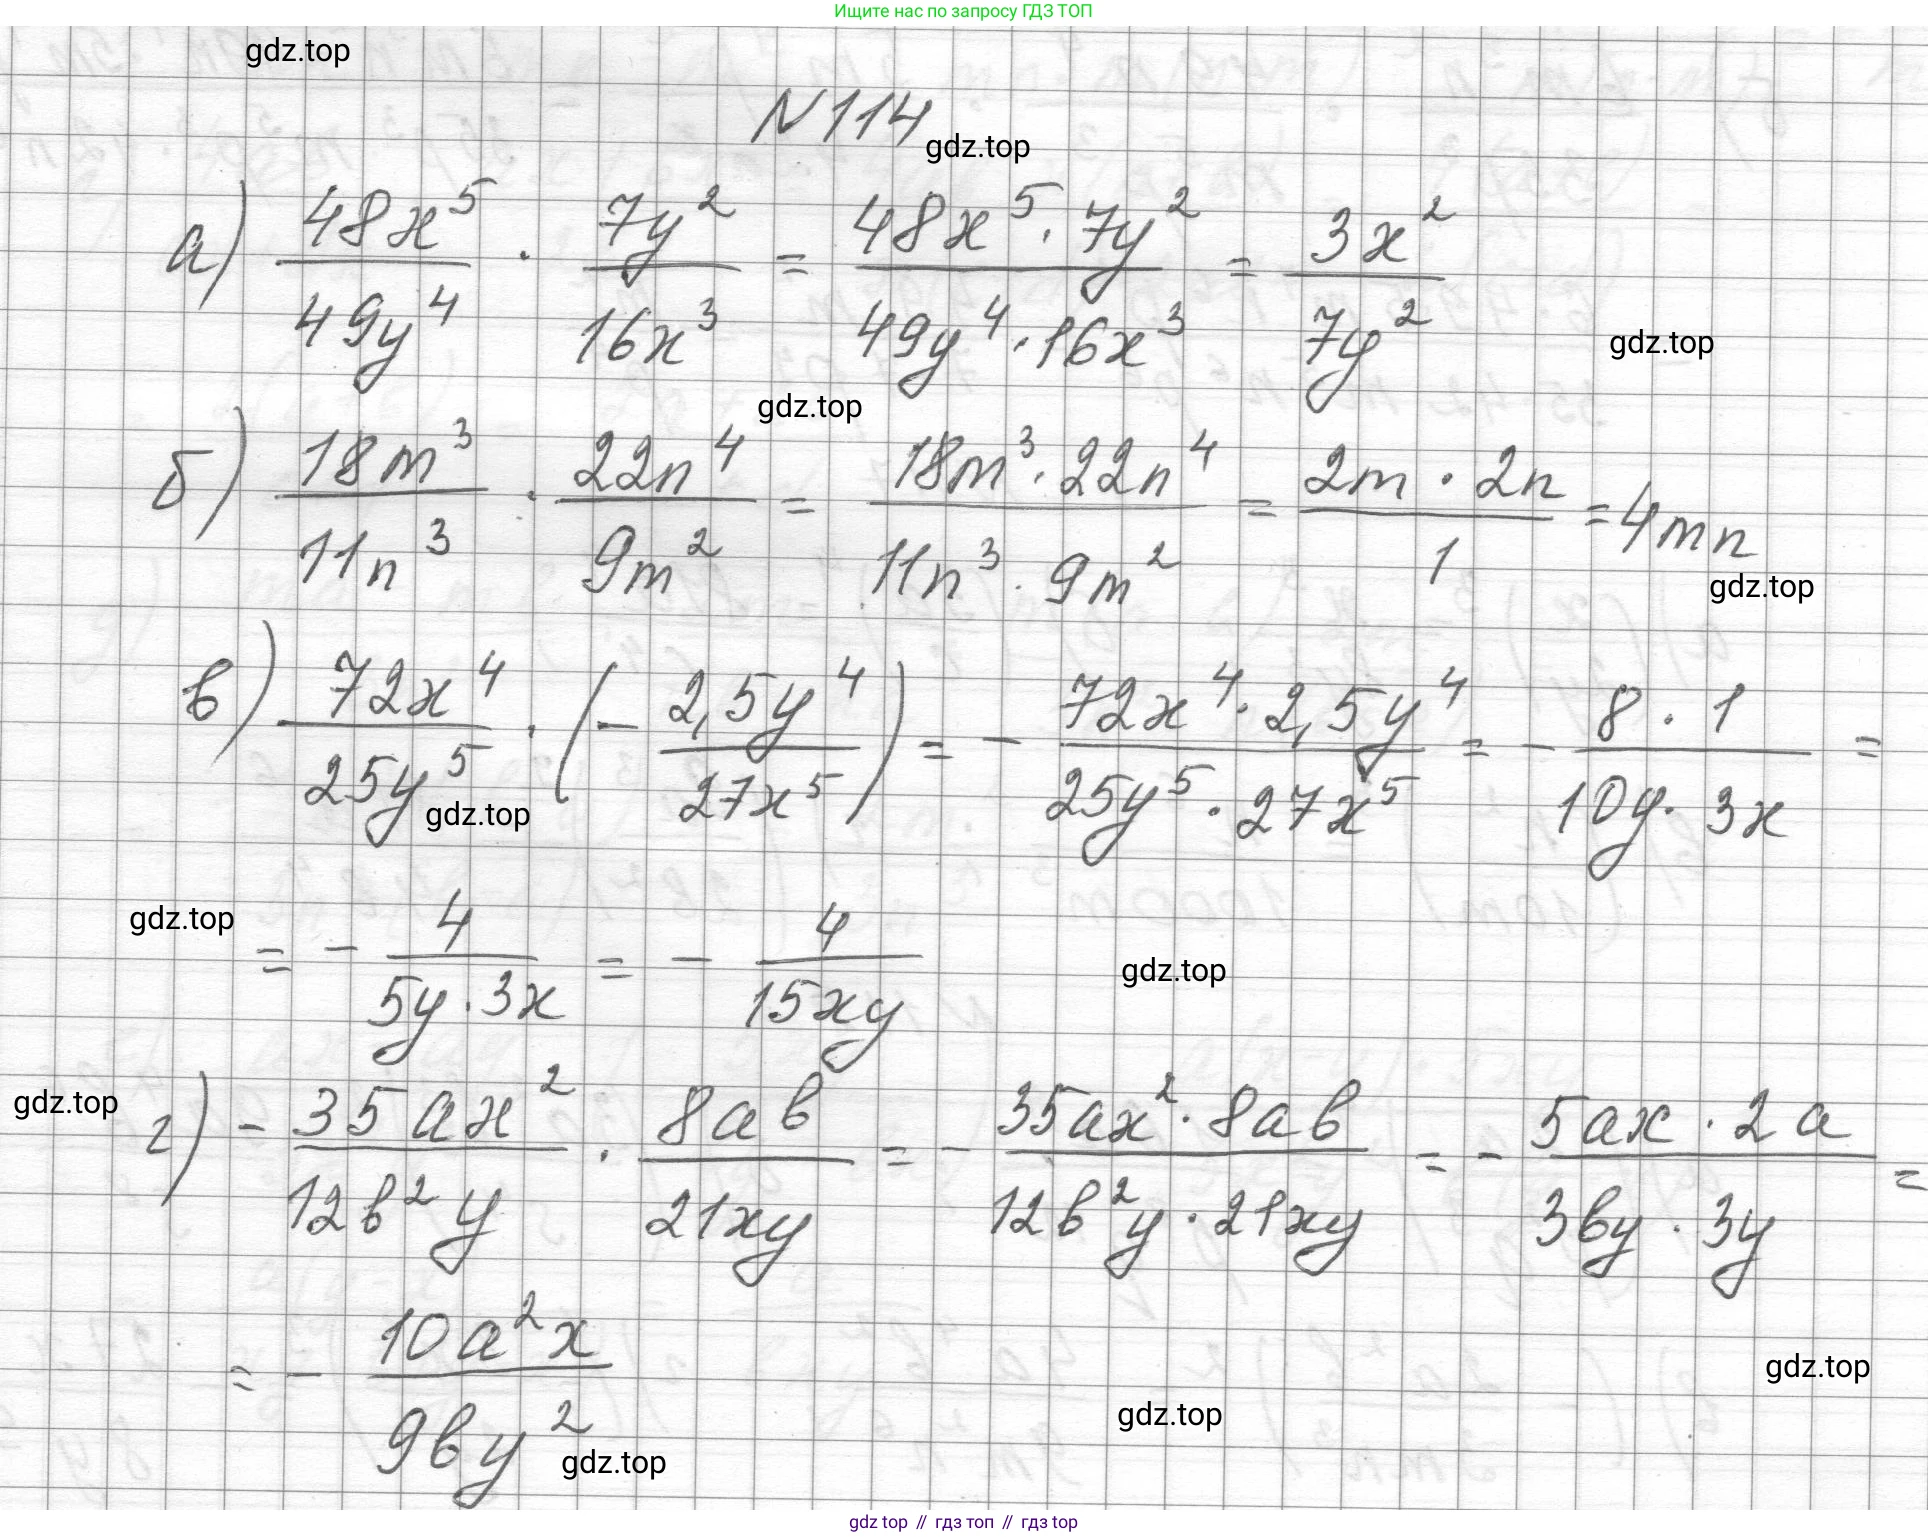 Ищите нас по запросу ГДЗ ТОП
gdz.top
N 114
gdz.top
а) 48x^5/49y^4 · 7y^2/16x^3 = 48x^5 · 7y^2/49y^4 · 16x^3 = 3x^2/7y^2
gdz.top
gdz.top
б) 18m^3/11n^3 · 22n^4/9m^2 = 18m^3 · 22n^4/11n^3 · 9m^2 = 2m · 2n/1 = 4mn
gdz.top
в) 72x^4/25y^5 · (- 2,5y^4/27x^5) = - 72x^4 · 2,5y^4/25y^5 · 27x^5 = - 8 · 1/10y · 3x =
gdz.top
gdz.top
= - 4/5y · 3x = - 4/15xy
gdz.top
gdz.top
г) - 35ax^2/12b^2y · 8ab/21xy = - 35ax^2 · 8ab/12b^2y · 21xy = - 5ax · 2a/3by · 3y =
= - 10a^2x/9by^2
gdz.top
gdz.top
gdz.top
gdz top // гдз топ // гдз top